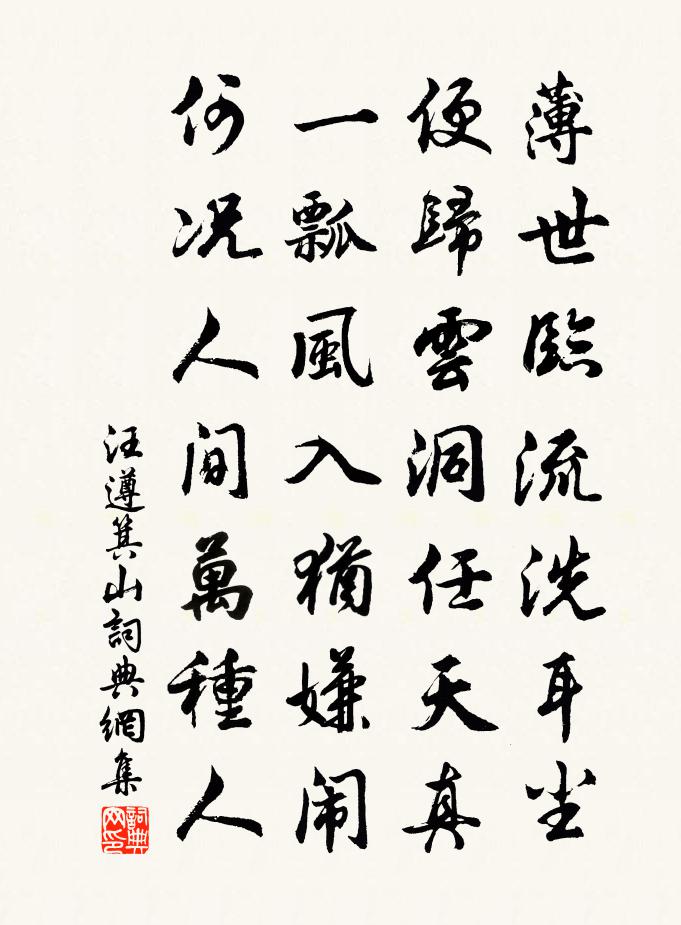 薄世臨流洗耳尘
便歸雲洞任天真
一瓢風入猶嫌闹
何况人间萬種人
汪遵箕山詞典網集
詞典网印